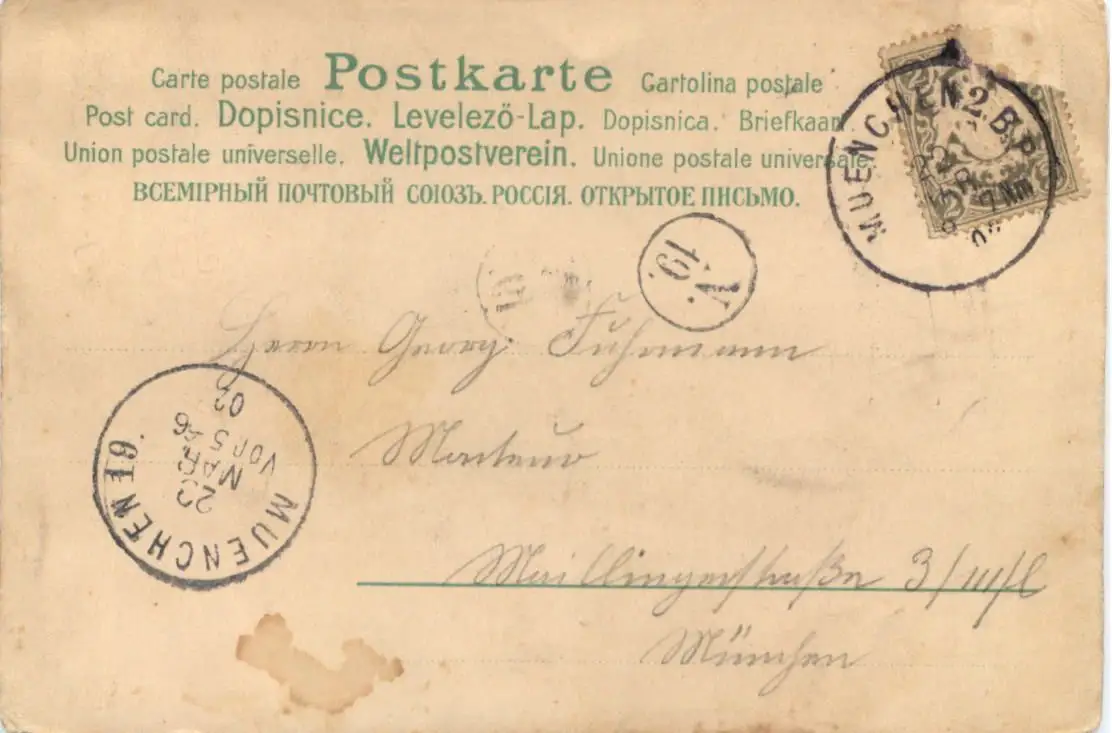 Carte postale Postkarte Cartolina postale
Post card. Dopisnice. Levelező-Lap. Dopisnica. Briefkaart.
Union postale universelle. Weltpostverein. Unione postale universale.
ВСЕМІРНЫЙ ПОЧТОВЫЙ СОЮЗЪ. РОССІЯ. ОТКРЫТОЕ ПИСЬМО.
MUENCHEN 2. B.P.
22
MAR
7 Nm
V.
19.
19
Herrn Georg Fuhrmann
Monteur
MUENCHEN 19.
23
MAR.
VOR 5-6
02
Maillingerstraße 3/III/l
München